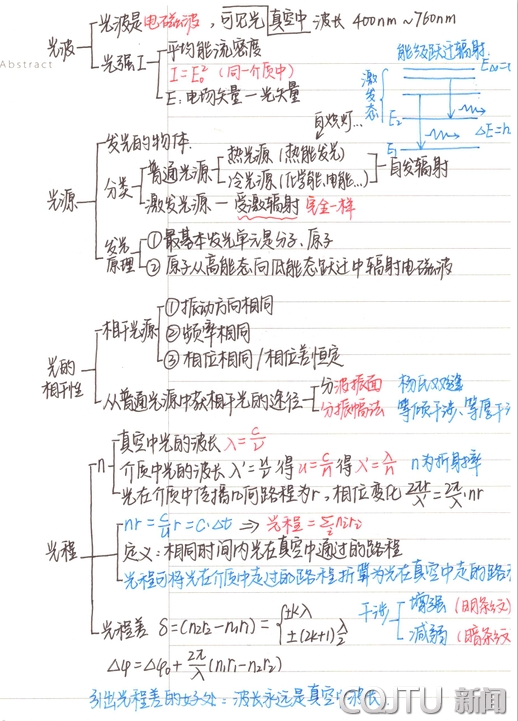 光波是电磁波，可见光 真空中 波长 400nm~760nm
光波
Abstract
光强I
平均能流密度
I=E₀² (同一介质中)
E: 电场矢量—光矢量
能级跃迁辐射
激发态
E₂
E₁
光源
发光的物体.
分类
普通光源
热光源 (热能发光)
白炽灯...
冷光源 (化学能、电能...)
自发辐射
激发光源 — 受激辐射 完全一样
发光原理
①最基本发光单元是分子、原子
②原子从高能态向低能态跃迁中辐射电磁波
光的相干性
相干光源
①振动方向相同
②频率相同
③相位相同/相位差恒定
从普通光源中获相干光的途径
分波振面 杨氏双缝
分振幅法 等倾干涉、等厚干
光程
n
真空中光的波长 λ=c/ν
介质中光的波长 λ'= 得 u=c/n 得 λ'=λ/n n为折射率
光在介质中传播几何路程为r, 相位变化 2πr/λ' = 2π/λ·nr
nr=c/u r=c·Δt ⇒ 光程=
定义: 相同时间内光在真空中通过的路程
光程可将光在介质中走过的路程折算为光在真空中走的路
光程差 δ=(n₂r₂-n₁r₁)= {±kλ
±(2k+1)λ/2
干涉
增强 (明条纹)
减弱 (暗条纹
Δφ=Δφ₀+2π/λ(n₁r₁-n₂r₂)
引出光程差的好处: 波长永远是真空中波长.
CQJTU 新闻